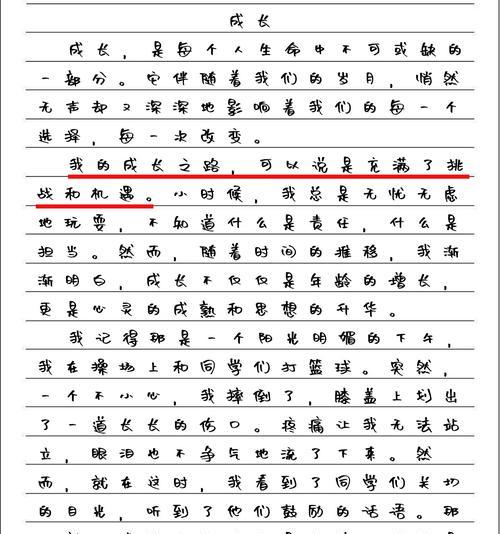 成长
成长，是每个人生命中不可或缺的
一部分。它伴随着我们的岁月，悄然
无声却又深深地影响着我们的每一个
选择，每一次改变。
我的成长之路，可以说是充满了挑
战和机遇。小时候，我总是无忧无虑
地玩耍，不知道什么是责任，什么是
担当。然而，随着时间的推移，我渐
渐明白，成长不仅仅是年龄的增长，
更是心灵的成熟和思想的升华。
我记得那是一个阳光明媚的下午，
我在操场上和同学们打篮球。突然，
一个不小心，我摔倒了，膝盖上划出
了一道长长的伤口。疼痛让我无法站
立，眼泪也不争气地流了下来。然
而，就在这时，我看到了同学们关切
的目光，听到了他们鼓励的话语。那